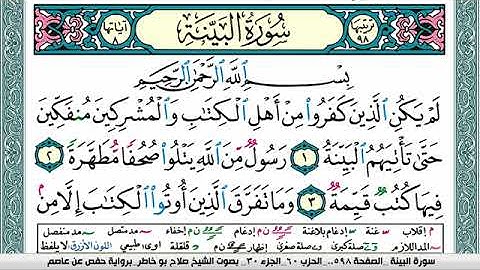 ترتيبها ٩٨ سُورَةُ البَيِّنَةِ آياتها ٨
بِسْمِ اللَّهِ الرَّحْمَٰنِ الرَّحِيمِ
لَمْ يَكُنِ الَّذِينَ كَفَرُوا مِنْ أَهْلِ الْكِتَابِ وَالْمُشْرِكِينَ مُنفَكِّينَ
حَتَّىٰ تَأْتِيَهُمُ الْبَيِّنَةُ ١ رَسُولٌ مِّنَ اللَّهِ يَتْلُوا صُحُفًا مُّطَهَّرَةً ٢
فِيهَا كُتُبٌ قَيِّمَةٌ ٣ وَمَا تَفَرَّقَ الَّذِينَ أُوتُوا الْكِتَابَ إِلَّا مِن
م إقلاب غنة إدغام بلاغنة إدغام إخفاء مد متصل مد منفصل
المد اللازم صلة كبرى صلة صغرى إظهار قلقلة طبيعي اللون الأزرق لا يلفظ
سورة البينة . الصفحة ٥٩٨.. الحزب ٦٠ . الجزء ٣٠ . بصوت الشيخ صلاح بو خاطر . برواية حفص عن عاصم